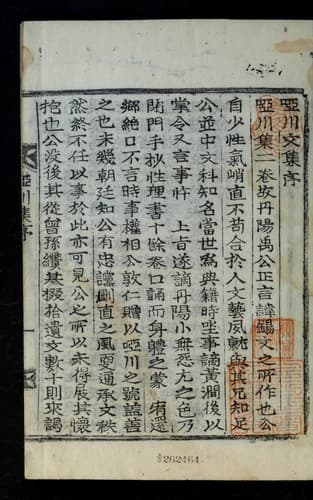 啞川文集序
啞川集二卷故丹陽禹公正言諱錫文之所作也公
自少性氣峭直不苟合於人文藝夙就與其兄知足
公並中文科知名當世爲典籍時坐事謫黃澗後以
掌令又言事忤 上旨遂謫丹陽小無怨尤之色乃
閉門手抄性理書十餘卷口誦而身體之蒙 宥還
鄕絶口不言時事權相公敦仁贈以啞川之號盖善
之也末幾朝廷知公有忠讜剴直之風耍通承文秩
然終不任以事於此亦可見公之所以未得展其懷
抱也公沒後其從曾孫纘基掇拾遺文數十則來謁
啞川集序
一
262464